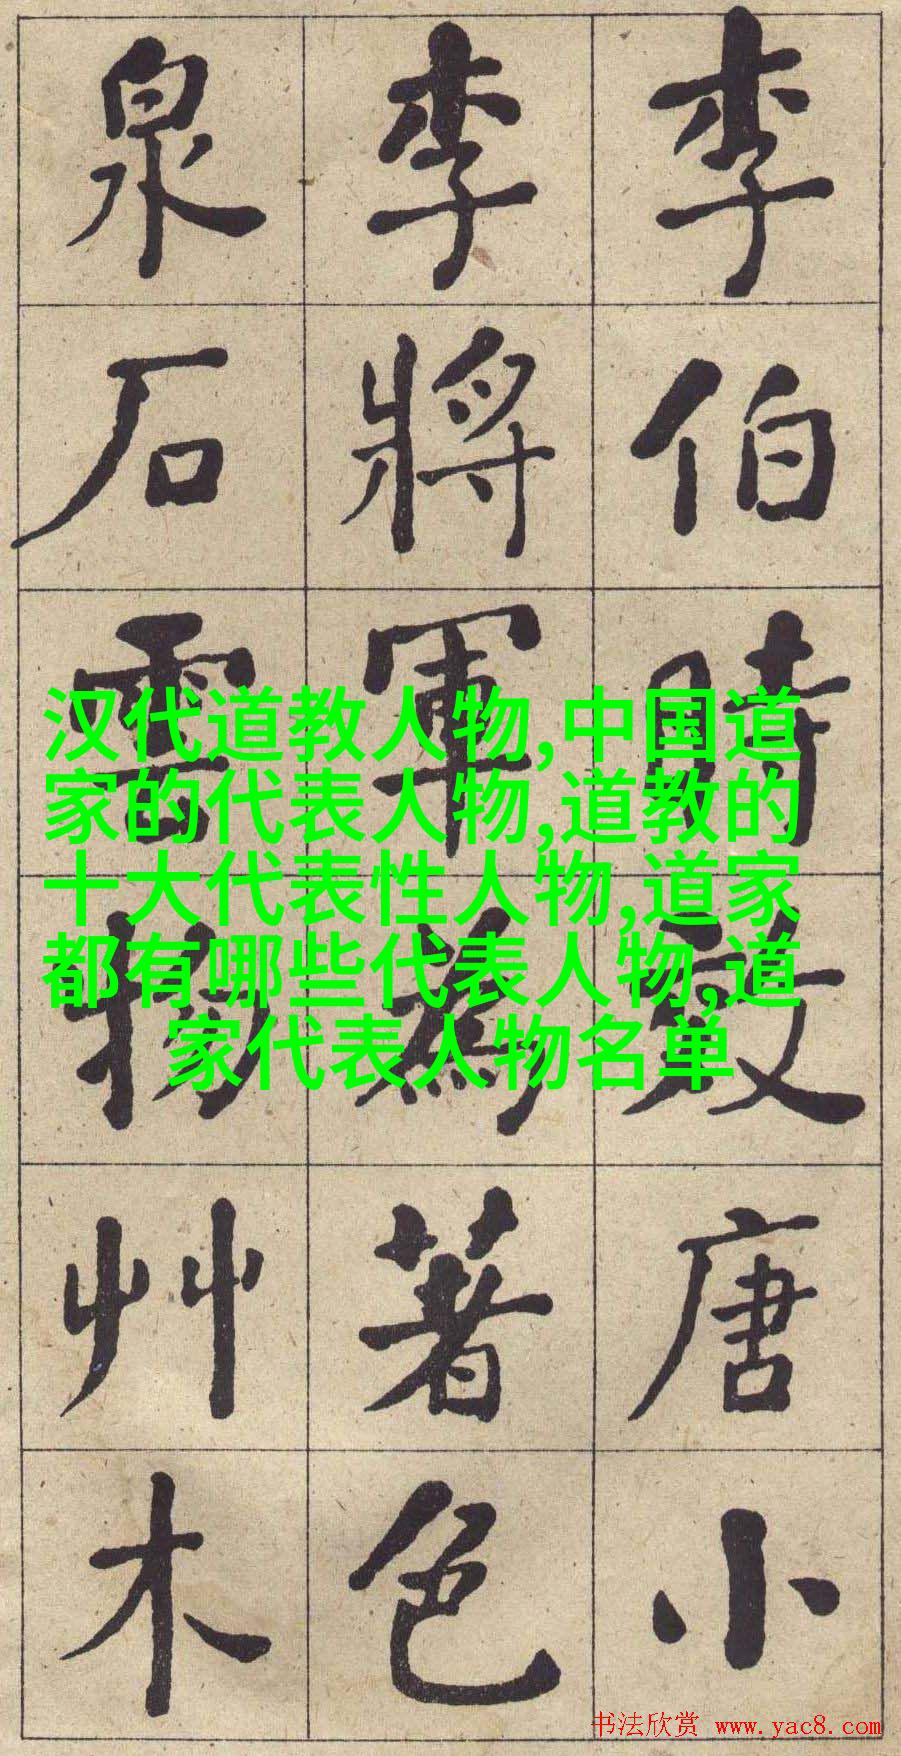 李伯時效唐小
李將軍為著色
泉石雲物艸木
汉代道教人物,中国道
家的代表人物,道教的
十大代表性人物,道家
都有哪些代表人物,道
家代表人物名单
书法欣赏 www.yac8.com